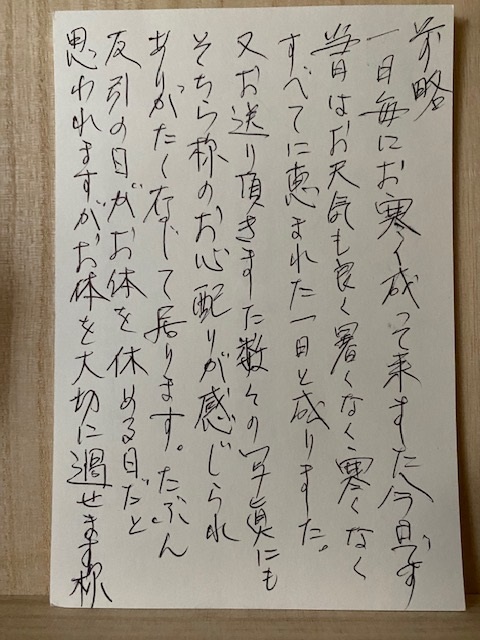 前略
一日毎にお寒く成って来ました今日です
当日はお天気も良く暑くなく寒くなく
すべてに恵まれた一日と成りました。
又お送り頂きました数々の写真にも
そちら様のお心配りが感じられ
ありがたく存じて居ります。たぶん
反引の日がお体を休める日だと
思われますがお体を大切に過せます様